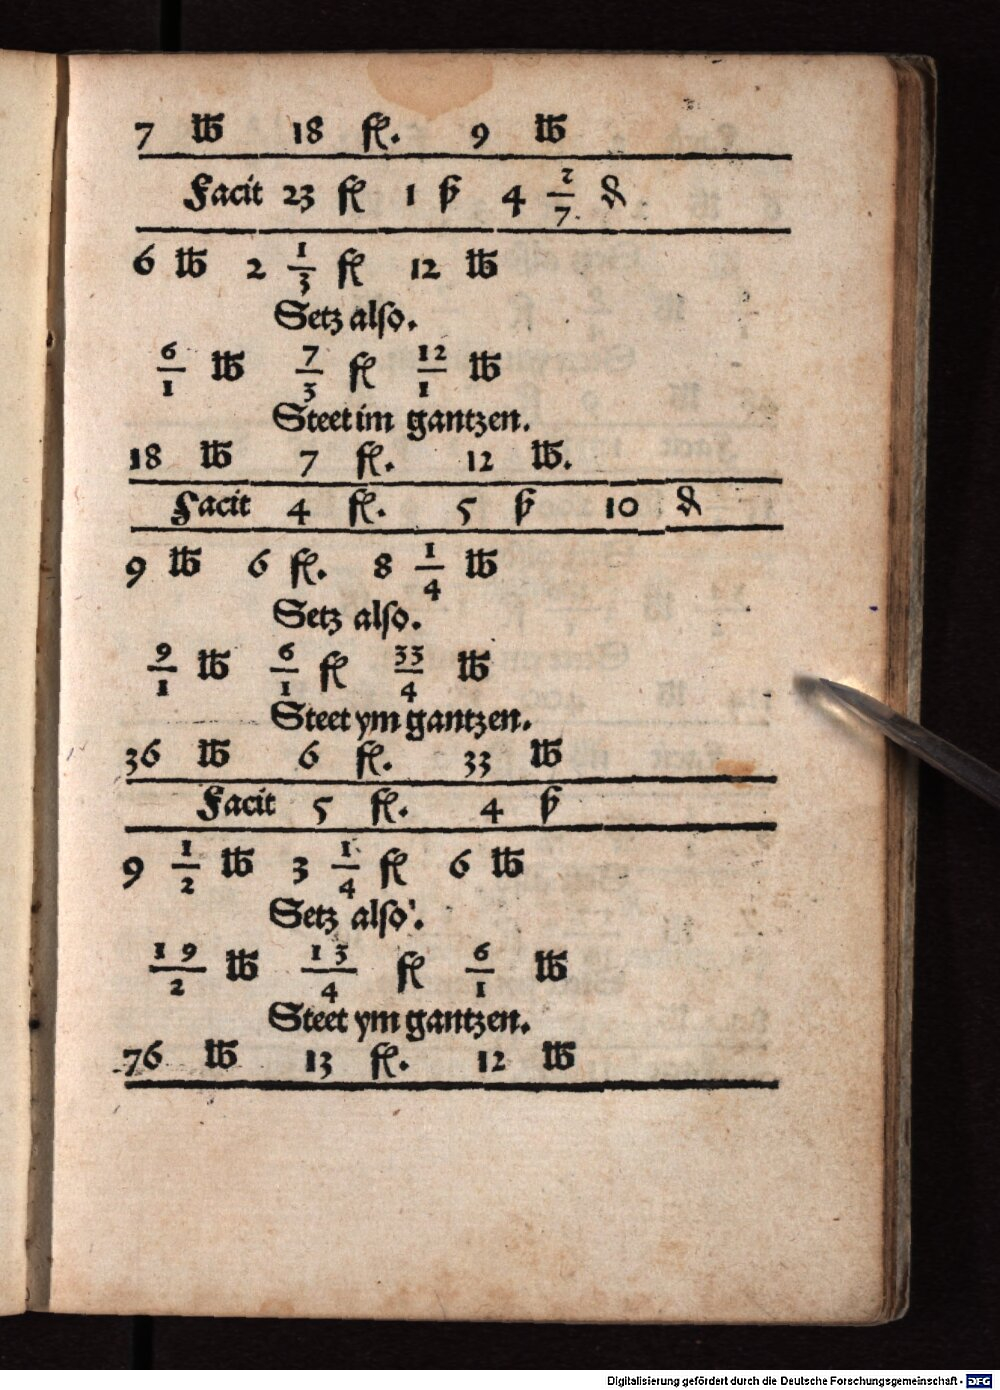 7 ℔ 18 fl. 9 ℔
Facit 23 fl 1 ß 4 2/7 ₰
6 ℔ 2 1/3 fl 12 ℔
Setz also.
6/1 ℔ 7/3 fl 12/1 ℔
Steet im gantzen.
18 ℔ 7 fl. 12 ℔.
Facit 4 fl. 5 ß 10 ₰
9 ℔ 6 fl. 8 1/4 ℔
Setz also.
9/1 ℔ 6/1 fl 33/4 ℔
Steet ym gantzen.
36 ℔ 6 fl. 33 ℔
Facit 5 fl. 4 ß
9 1/2 ℔ 3 1/4 fl 6 ℔
Setz also.
19/2 ℔ 13/4 fl 6/1 ℔
Steet ym gantzen.
76 ℔ 13 fl. 12 ℔
Digitalisierung gefördert durch die Deutsche Forschungsgemeinschaft - DFG